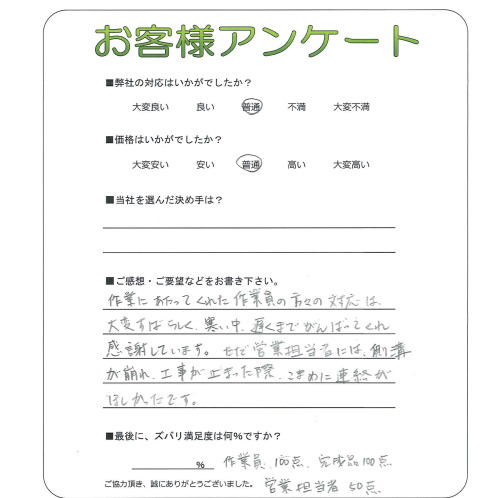 お客様アンケート
■弊社の対応はいかがでしたか？
大変良い 良い 普通 不満 大変不満
■価格はいかがでしたか？
大変安い 安い 普通 高い 大変高い
■当社を選んだ決め手は？
■ご感想・ご要望などをお書き下さい。
作業にあたってくれた作業員の方々の対応は、
大変すばらしく、寒い中、遅くまでがんばってくれ
感謝しています。ただ営業担当者には、側溝
が崩れ、工事が止まった際、こまめに連絡が
ほしかったです。
■最後に、ズバリ満足度は何%ですか？
% 作業員 100点、完成品100点
ご協力頂き、誠にありがとうございました。 営業担当者 50点